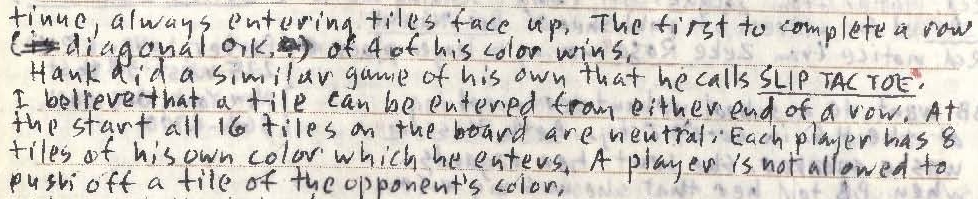 tinue, always entering tiles face up. The first to complete a row
(diagonal o.k.) of 4 of his color wins.
Hank did a similar game of his own that he calls SLIP TAC TOE.
I believe that a tile can be entered from either end of a row. At
the start all 16 tiles on the board are neutral. Each player has 8
tiles of his own color which he enters. A player is not allowed to
push off a tile of the opponent's color.